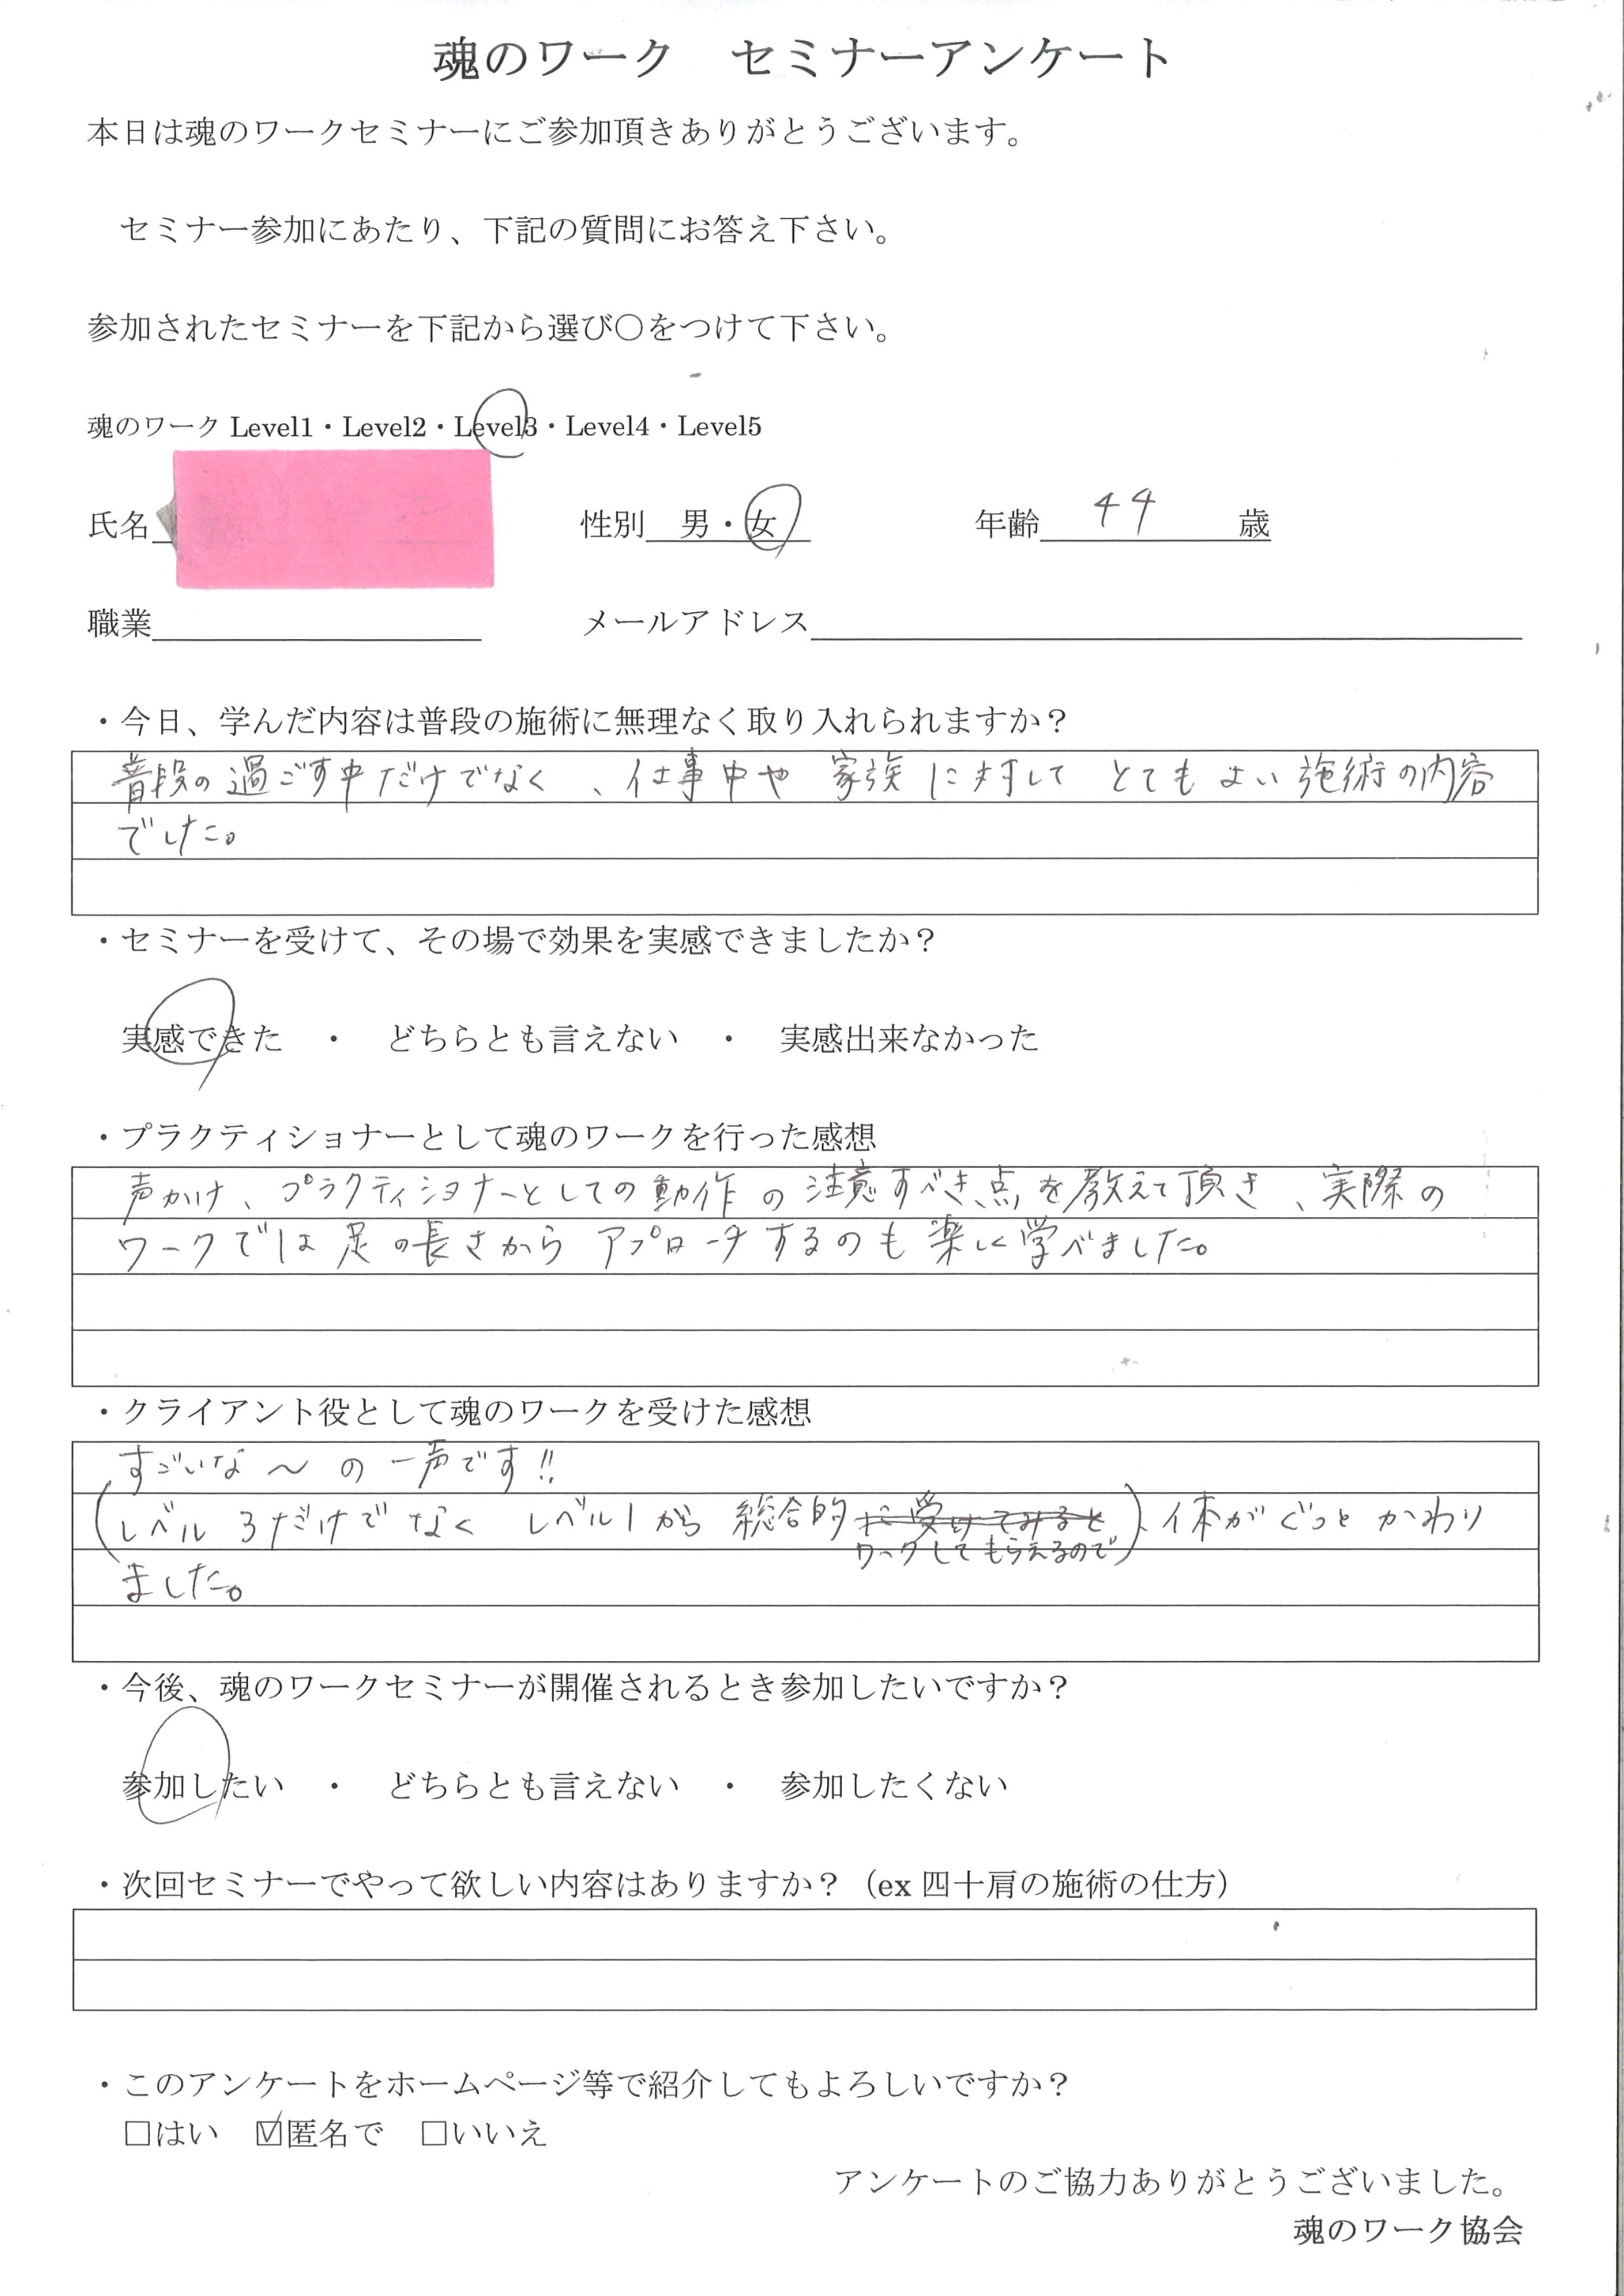 魂のワーク　セミナーアンケート
本日は魂のワークセミナーにご参加頂きありがとうございます。
セミナー参加にあたり、下記の質問にお答え下さい。
参加されたセミナーを下記から選び〇をつけて下さい。
魂のワーク Level1・Level2・Level3・Level4・Level5
氏名　性別　男・女　年齢 44 歳
職業　メールアドレス
・今日、学んだ内容は普段の施術に無理なく取り入れられますか？
普段の過ごす中だけでなく、仕事中や 家族に対して とてもよい施術の内容
でした。
・セミナーを受けて、その場で効果を実感できましたか？
実感できた　・　どちらとも言えない　・　実感出来なかった
・プラクティショナーとして魂のワークを行った感想
声かけ、プラクティショナーとしての動作の注意すべき点を教えて頂き、実際の
ワークでは足の長さから アプローチするのも楽しく学べました。
・クライアント役として魂のワークを受けた感想
すごいな～の一声です!!
(レベル3だけでなく レベル1から 総合的に受けてみると)、体がぐっとかわり
ワークしてもらえるので
ました。
・今後、魂のワークセミナーが開催されるとき参加したいですか？
参加したい　・　どちらとも言えない　・　参加したくない
・次回セミナーでやって欲しい内容はありますか？（ex 四十肩の施術の仕方）
・このアンケートをホームページ等で紹介してもよろしいですか？
□はい　☑匿名で　□いいえ
アンケートのご協力ありがとうございました。
魂のワーク協会